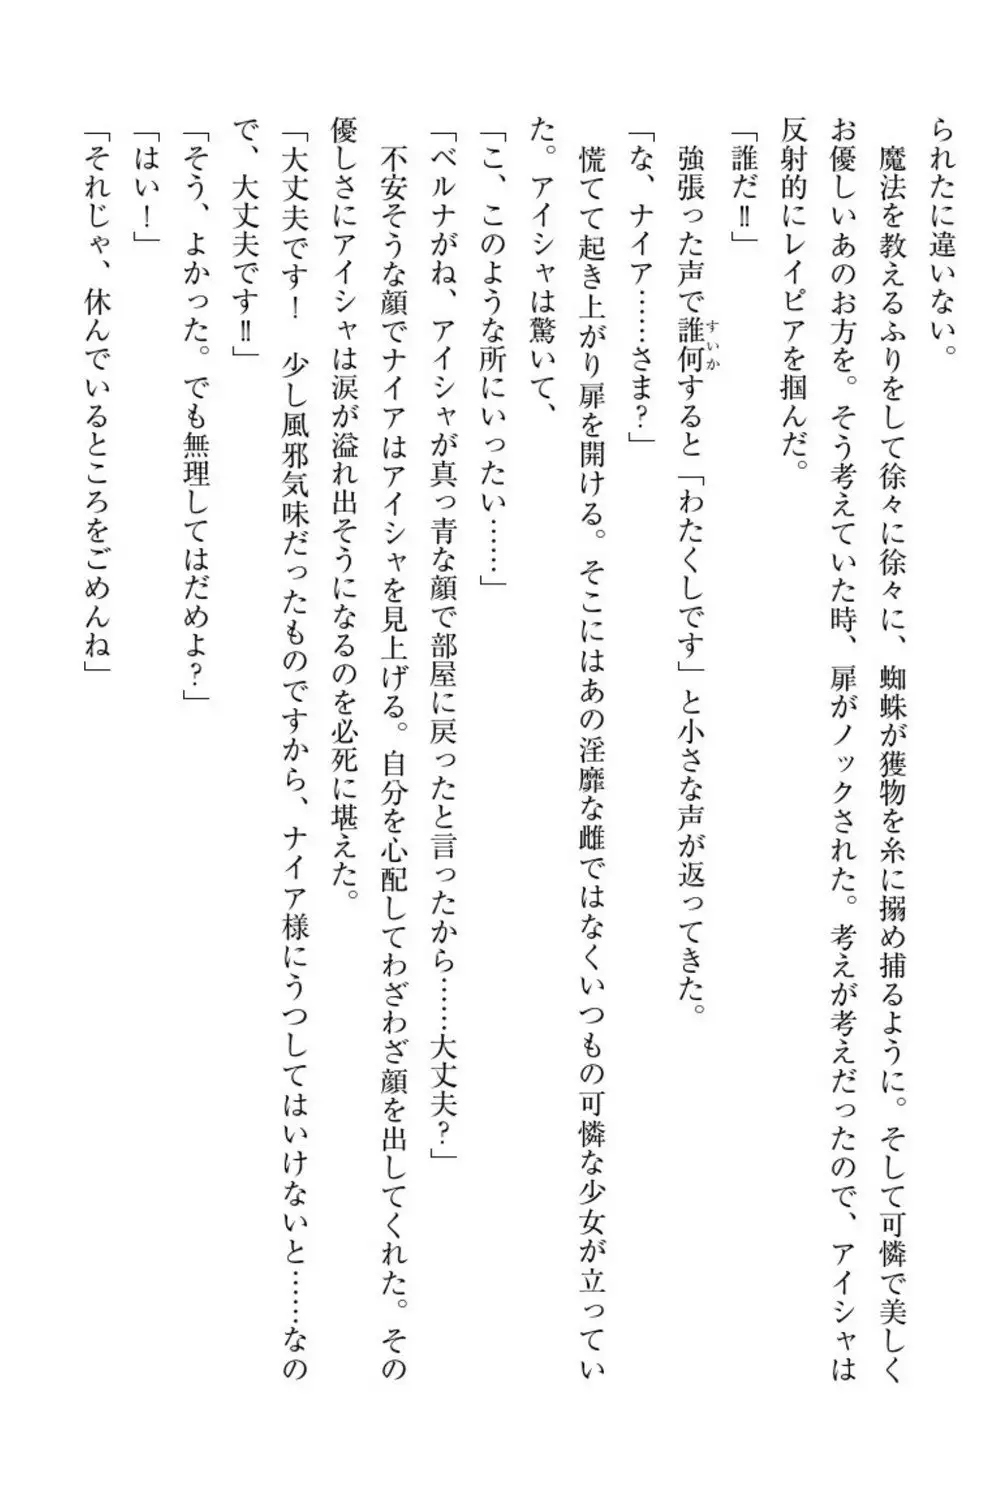 られたに違いない。
　魔法を教えるふりをして徐々に徐々に、蜘蛛が獲物を糸に搦め捕るように。そして可憐で美しく
お優しいあのお方を。そう考えていた時、扉がノックされた。考えが考えだったので、アイシャは
反射的にレイピアを掴んだ。
「誰だ‼」
　強張った声で誰何すると「わたくしです」と小さな声が返ってきた。
すいか
「な、ナイア……さま？」
　慌てて起き上がり扉を開ける。そこにはあの淫靡な雌ではなくいつもの可憐な少女が立ってい
た。アイシャは驚いて、
「こ、このような所にいったい……」
「ベルナがね、アイシャが真っ青な顔で部屋に戻ったと言ったから……大丈夫？」
　不安そうな顔でナイアはアイシャを見上げる。自分を心配してわざわざ顔を出してくれた。その
優しさにアイシャは涙が溢れ出そうになるのを必死に堪えた。
「大丈夫です！　少し風邪気味だったものですから、ナイア様にうつしてはいけないと……なの
で、大丈夫です‼」
「そう、よかった。でも無理してはだめよ？」
「はい！」
「それじゃ、休んでいるところをごめんね」